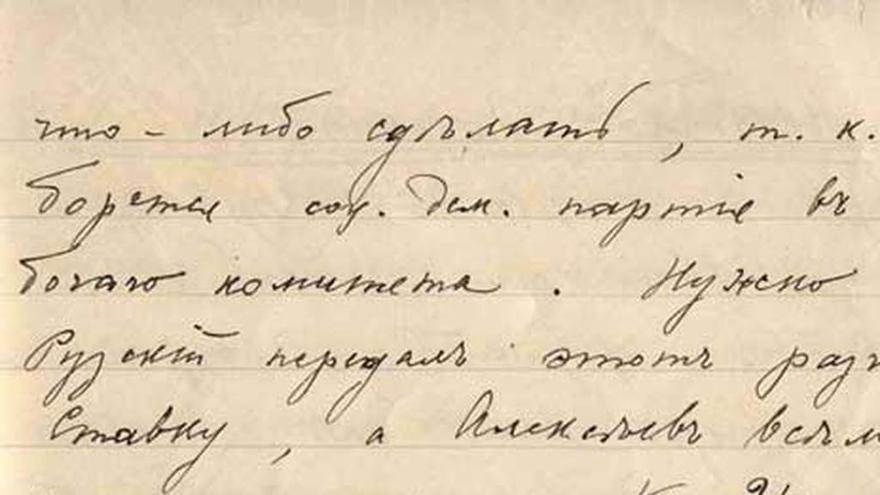 что-либо сдѣлать, т. к.
борется соц. дем. партія въ
бочаго комитета. Нужно
Рузскій передалъ этотъ раз
Ставку, а Алексѣевъ всѣм